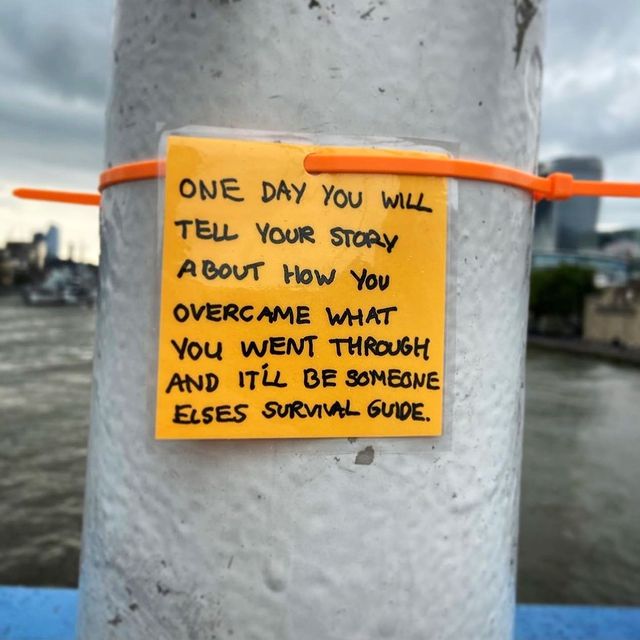 ONE DAY YOU WILL
TELL YOUR STORY
ABOUT HOW YOU
OVERCAME WHAT
YOU WENT THROUGH
AND IT'LL BE SOMEONE
ELSES SURVIVAL GUIDE.